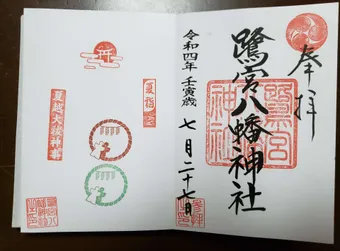 奉拝
鷺宮八幡神社
鷺宮八幡神社
令和四年 壬寅歳 七月二十七日
夏詣
夏越大祓神事